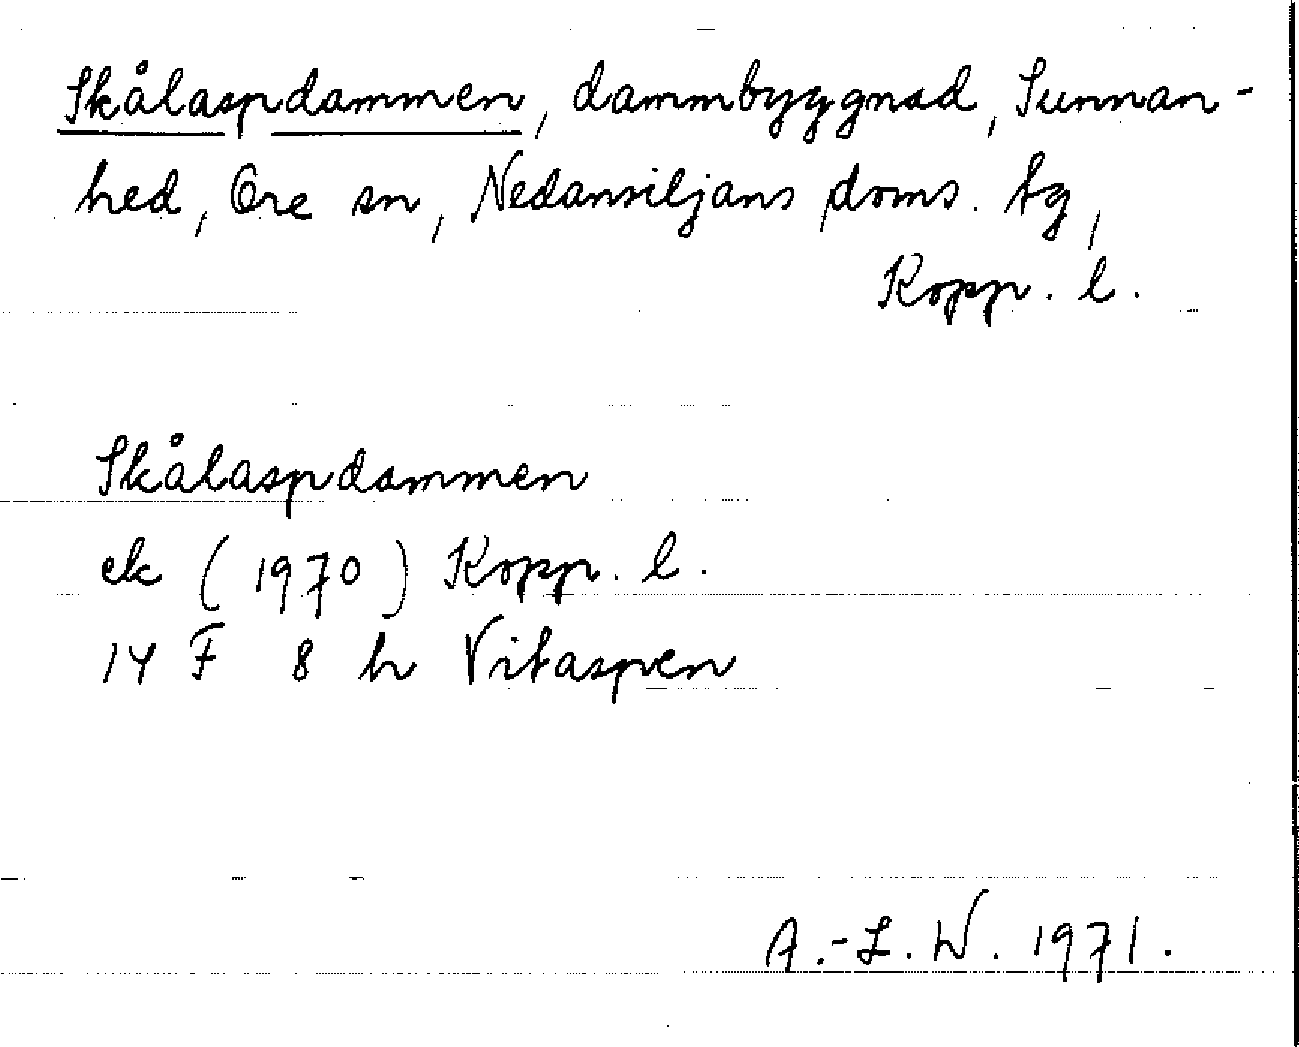 Skålaspdammen, dammbyggnad, Sunnan-
hed, Ore sn, Nedansiljans doms. tg,
Kopp. l.
Skålaspdammen
ek (1970) Kopp. l.
14 F 8 h Vitaspen
A.-L. W. 1971.